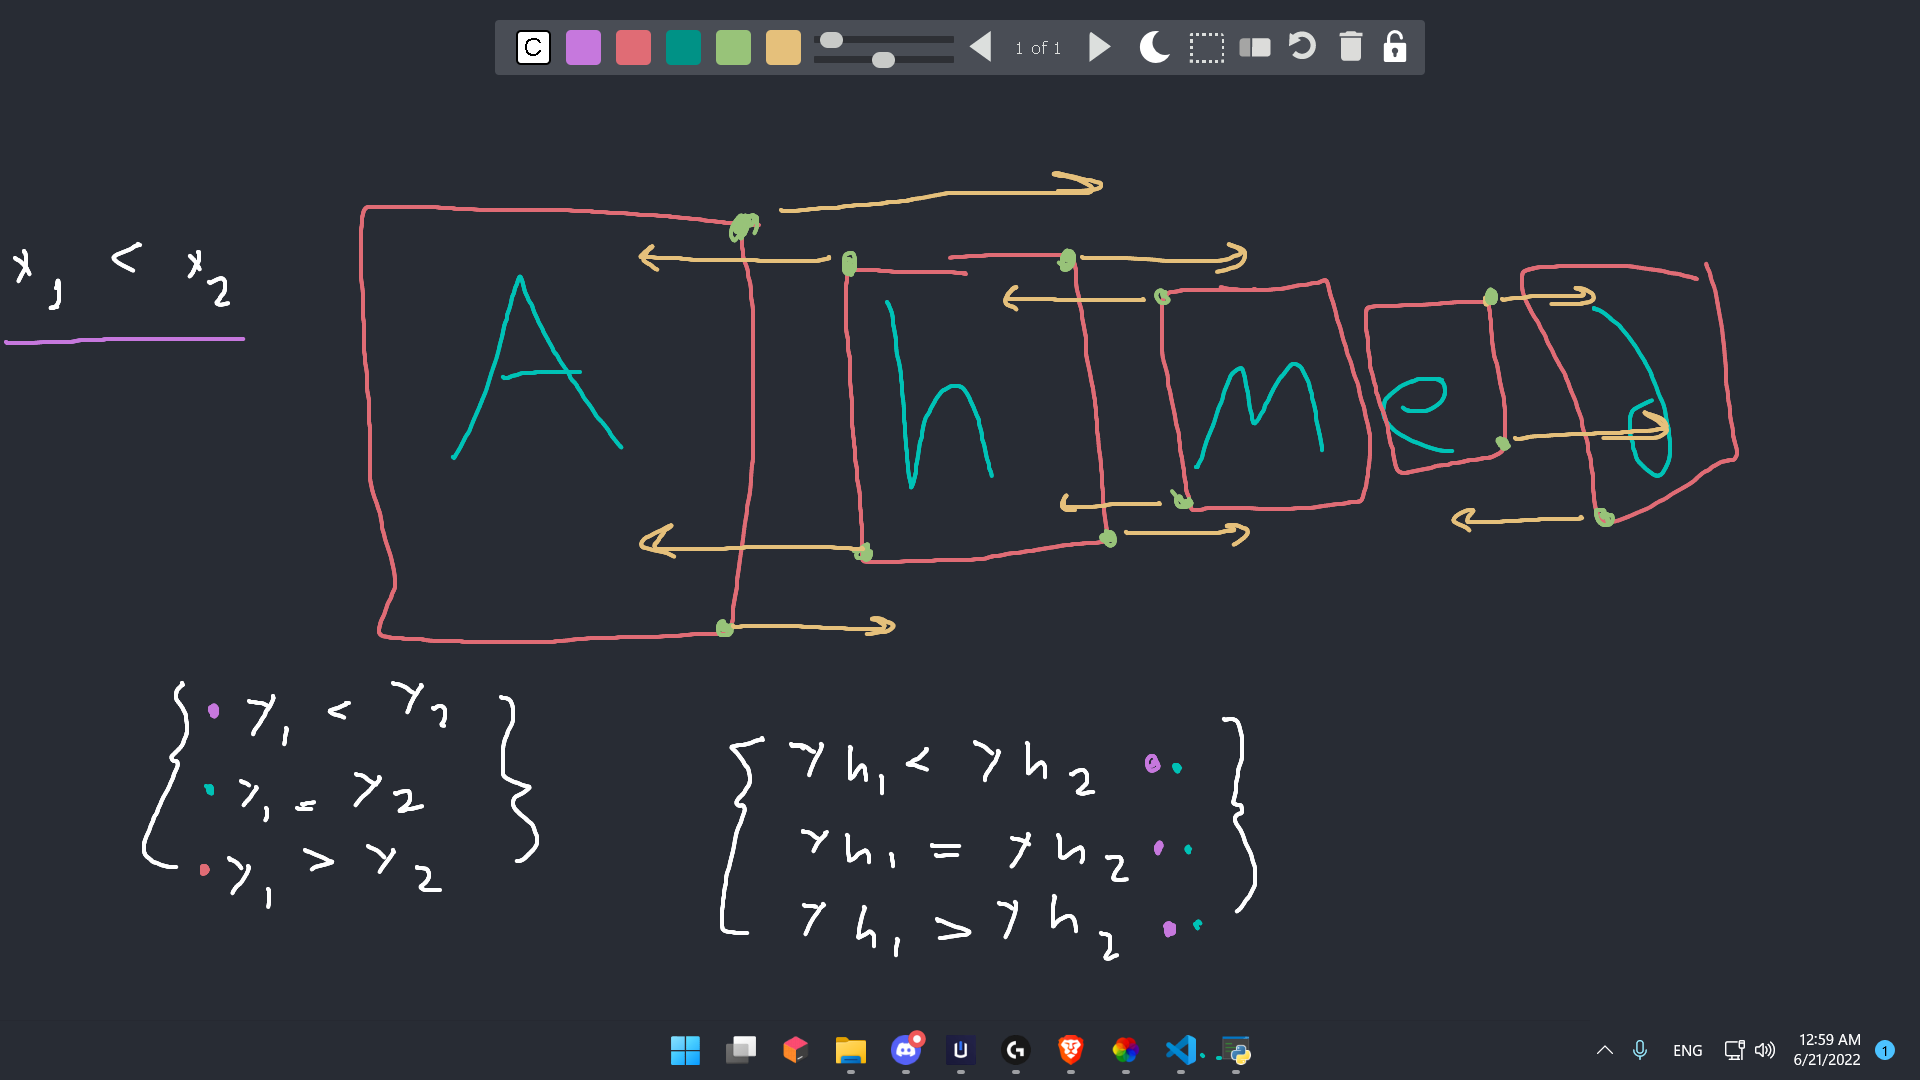 C
1 of 1
x₁ < x₂
A h m e d
y₁ < y₂
y₁ = y₂
y₁ > y₂
yh₁ < yh₂
yh₁ = yh₂
yh₁ > yh₂
ENG
12:59 AM
6/21/2022
1